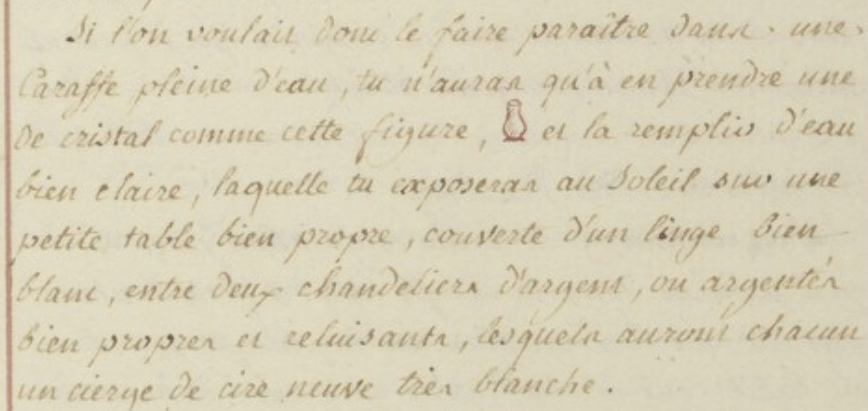 Si l'on voulait donc le faire paraître dans une
Caraffe pleine d'eau, tu n'auras qu'à en prendre une
de cristal comme cette figure, et la remplir d'eau
bien claire, laquelle tu exposeras au Soleil sur une
petite table bien propre, couverte d'un linge bien
blanc, entre deux chandeliers d'argent, ou argentés
bien propres et reluisants, lesquels auront chacun
un cierge de cire neuve très blanche.